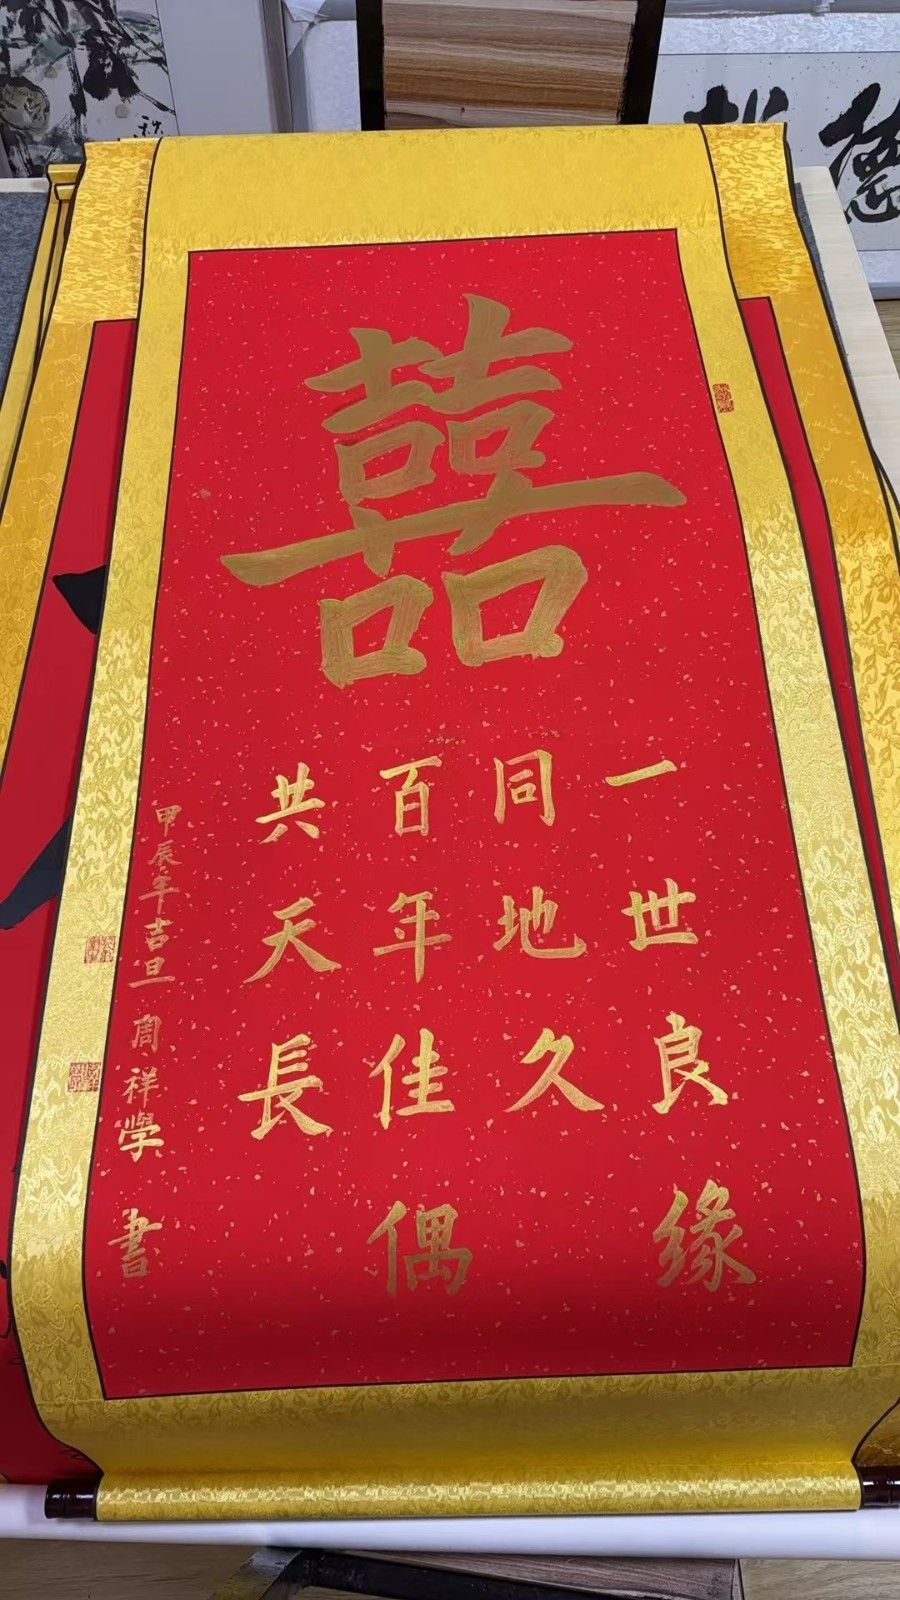 囍
一世良缘
同地久
百年佳偶
共天長
甲辰年吉旦 周祥學 書
德
秋